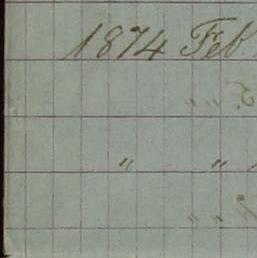 1874 Feb
" "